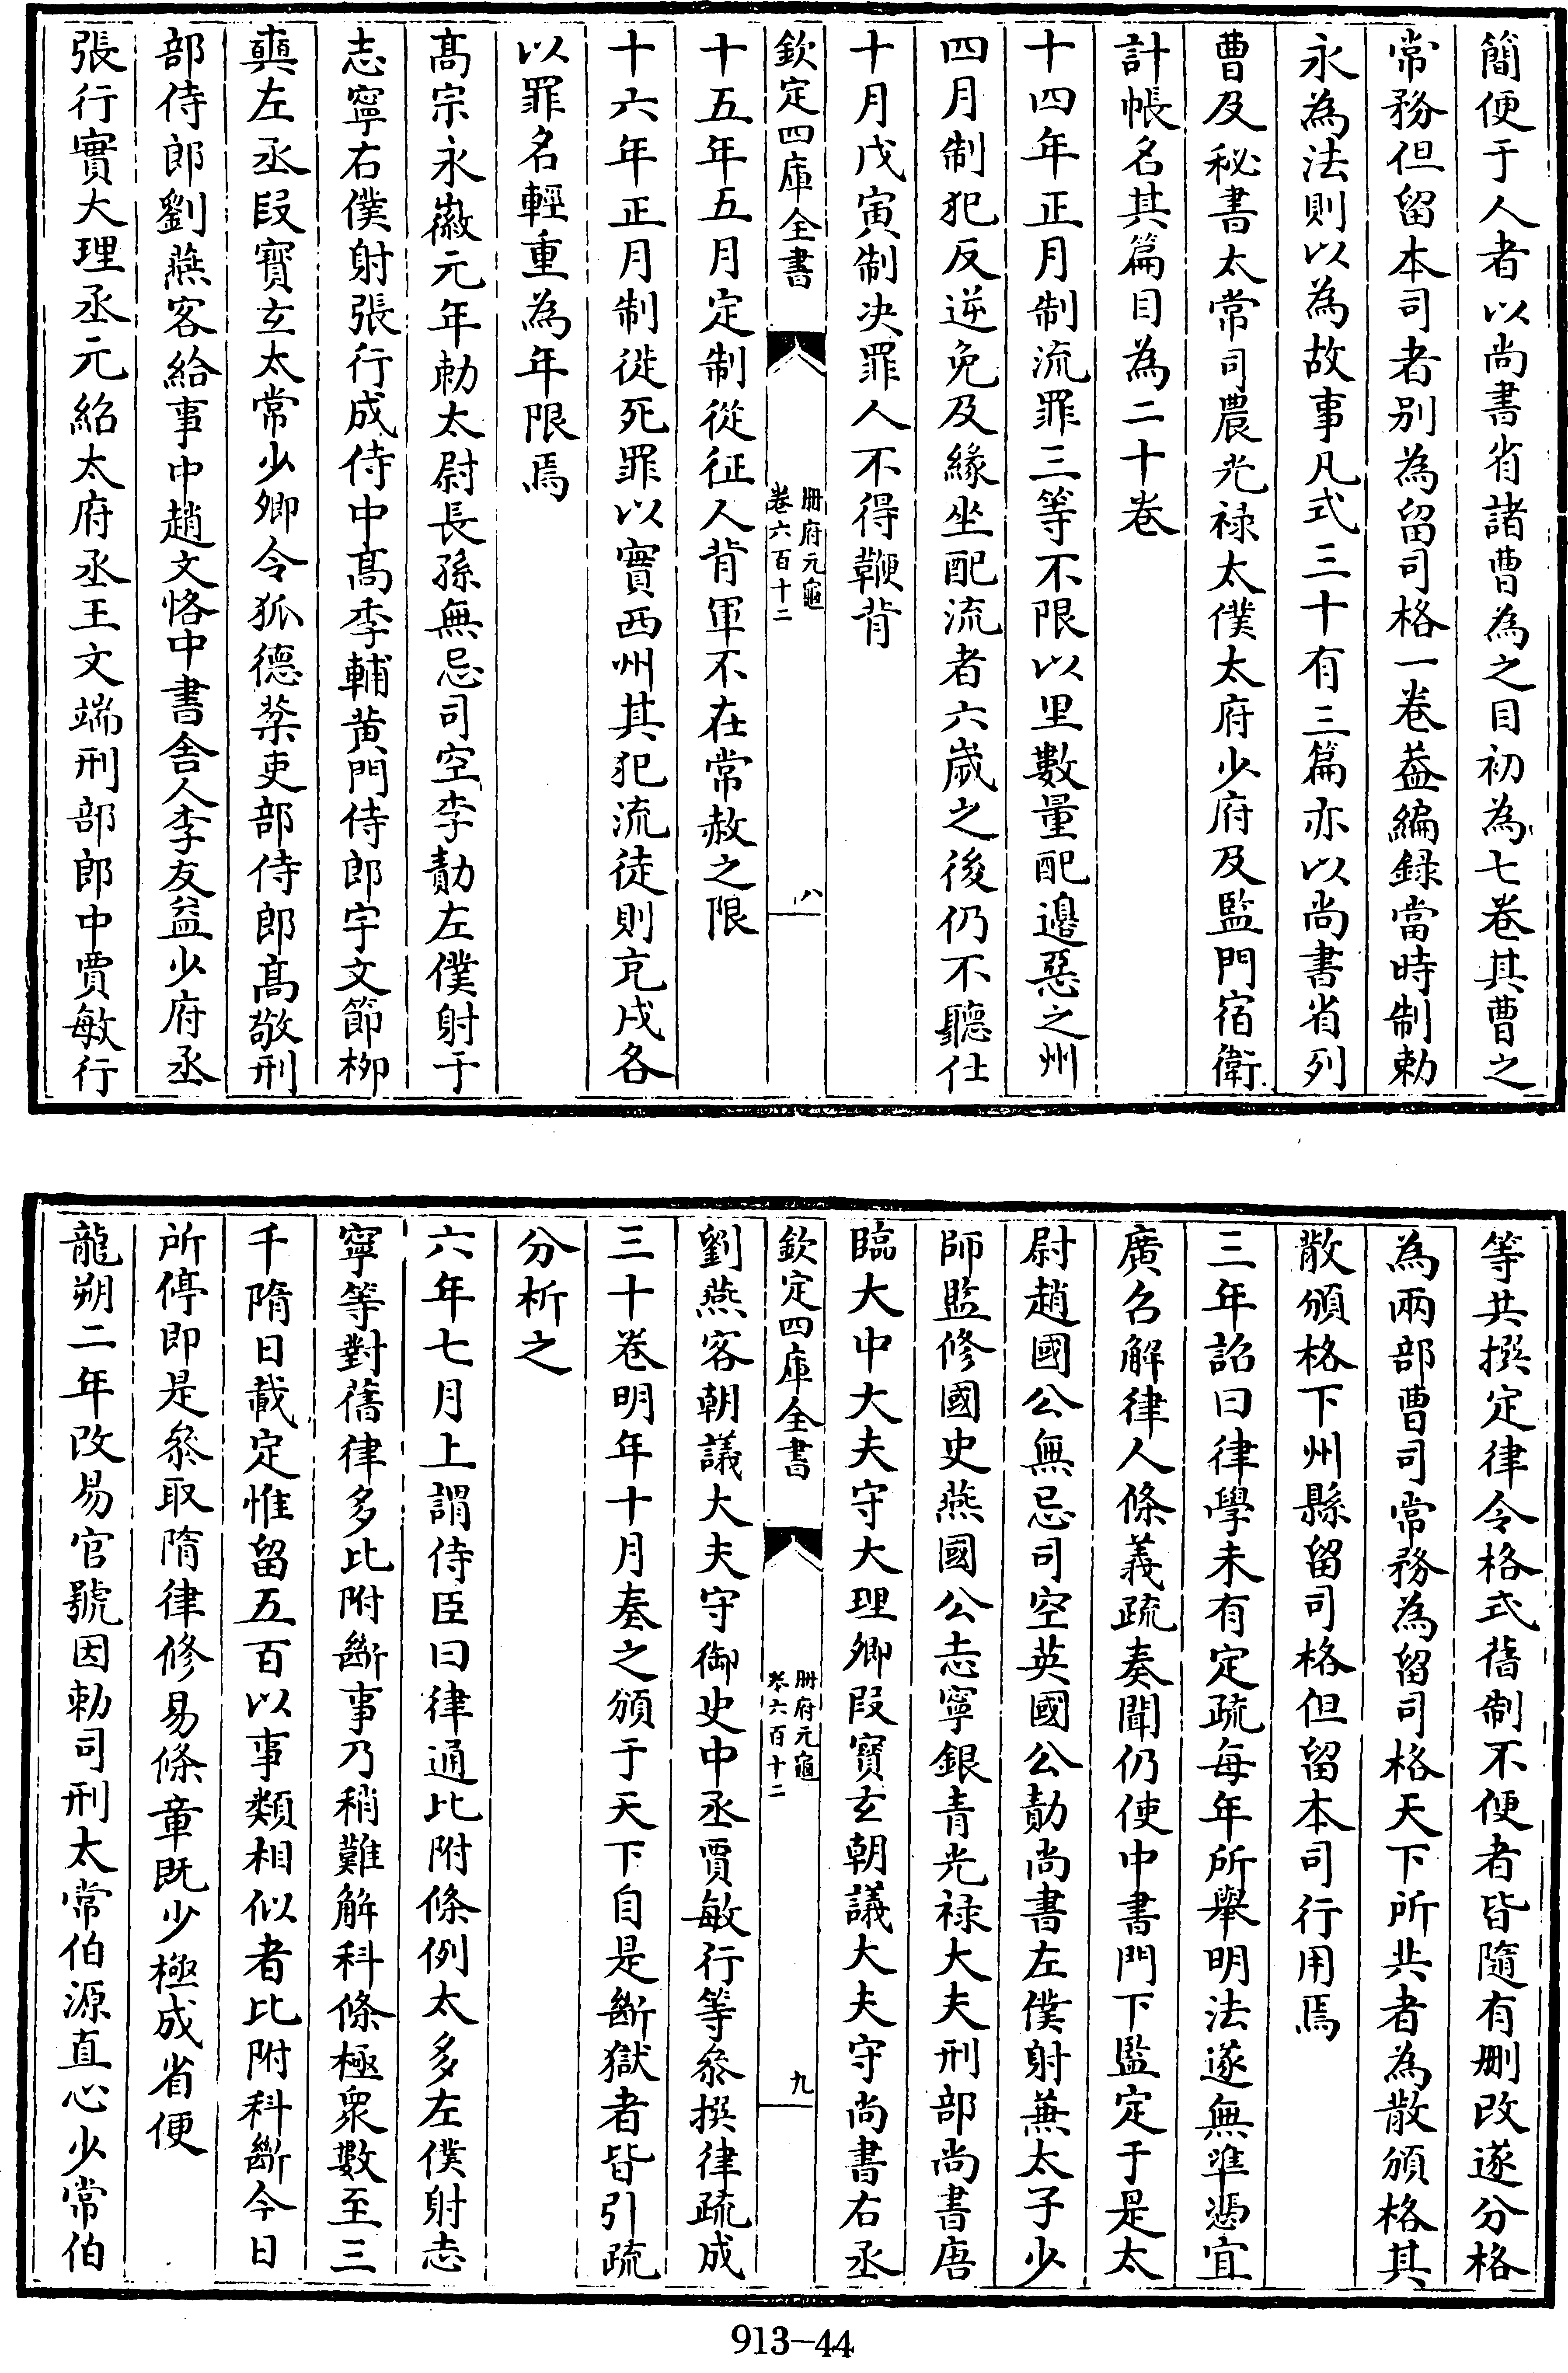 簡便于人者以尚書省諸曹為之目初為七卷其曹之
常務但留本司者别為留司格一卷葢編録當時制勅
永為法則以為故事凡式三十有三篇亦以尚書省列
曹及秘書太常司農光禄太僕太府少府及監門宿衛
計帳名其篇目為二十卷
十四年正月制流罪三等不限以里數量配邊惡之州
四月制犯反逆免及緣坐配流者六歲之後仍不聽仕
十月戊寅制決罪人不得鞭背
欽定四庫全書
册府元龜
卷六百十二
八
十五年五月定制從征人背軍不在常赦之限
十六年正月制徙死罪以實西州其犯流徒則充戍各
以罪名輕重為年限焉
髙宗永徽元年勅太尉長孫無忌司空李勣左僕射于
志寧右僕射張行成侍中髙季輔黄門侍郎宇文節栁
奭左丞段寳玄太常少卿令狐德棻吏部侍郎髙敬刑
部侍郎劉燕客給事中趙文恪中書舍人李友益少府丞
張行實大理丞元紹太府丞王文端刑部郎中賈敏行
等共撰定律令格式舊制不便者皆隨有删改遂分格
為兩部曹司常務為留司格天下所共者為散頒格其
散頒格下州縣留司格但留本司行用焉
三年詔曰律學未有定疏每年所舉明法遂無凖慿宜
廣名解律人條義疏奏聞仍使中書門下監定于是太
尉趙國公無忌司空英國公勣尚書左僕射兼太子少
師監修國史燕國公志寧銀青光禄大夫刑部尚書唐
臨大中大夫守大理卿段寳玄朝議大夫守尚書右丞
欽定四庫全書
册府元龜
卷六百十二
九
劉燕客朝議大夫守御史中丞賈敏行等叅撰律疏成
三十卷明年十月奏之頒于天下自是斷獄者皆引疏
分析之
六年七月上謂侍臣曰律通比附條例太多左僕射志
寧等對舊律多比附斷事乃稍難解科條極衆數至三
千隋日載定惟留五百以事類相似者比附科斷今日
所停即是叅取隋律修易條章既少極成省便
龍朔二年改易官號因勅司刑太常伯源直心少常伯
913-44